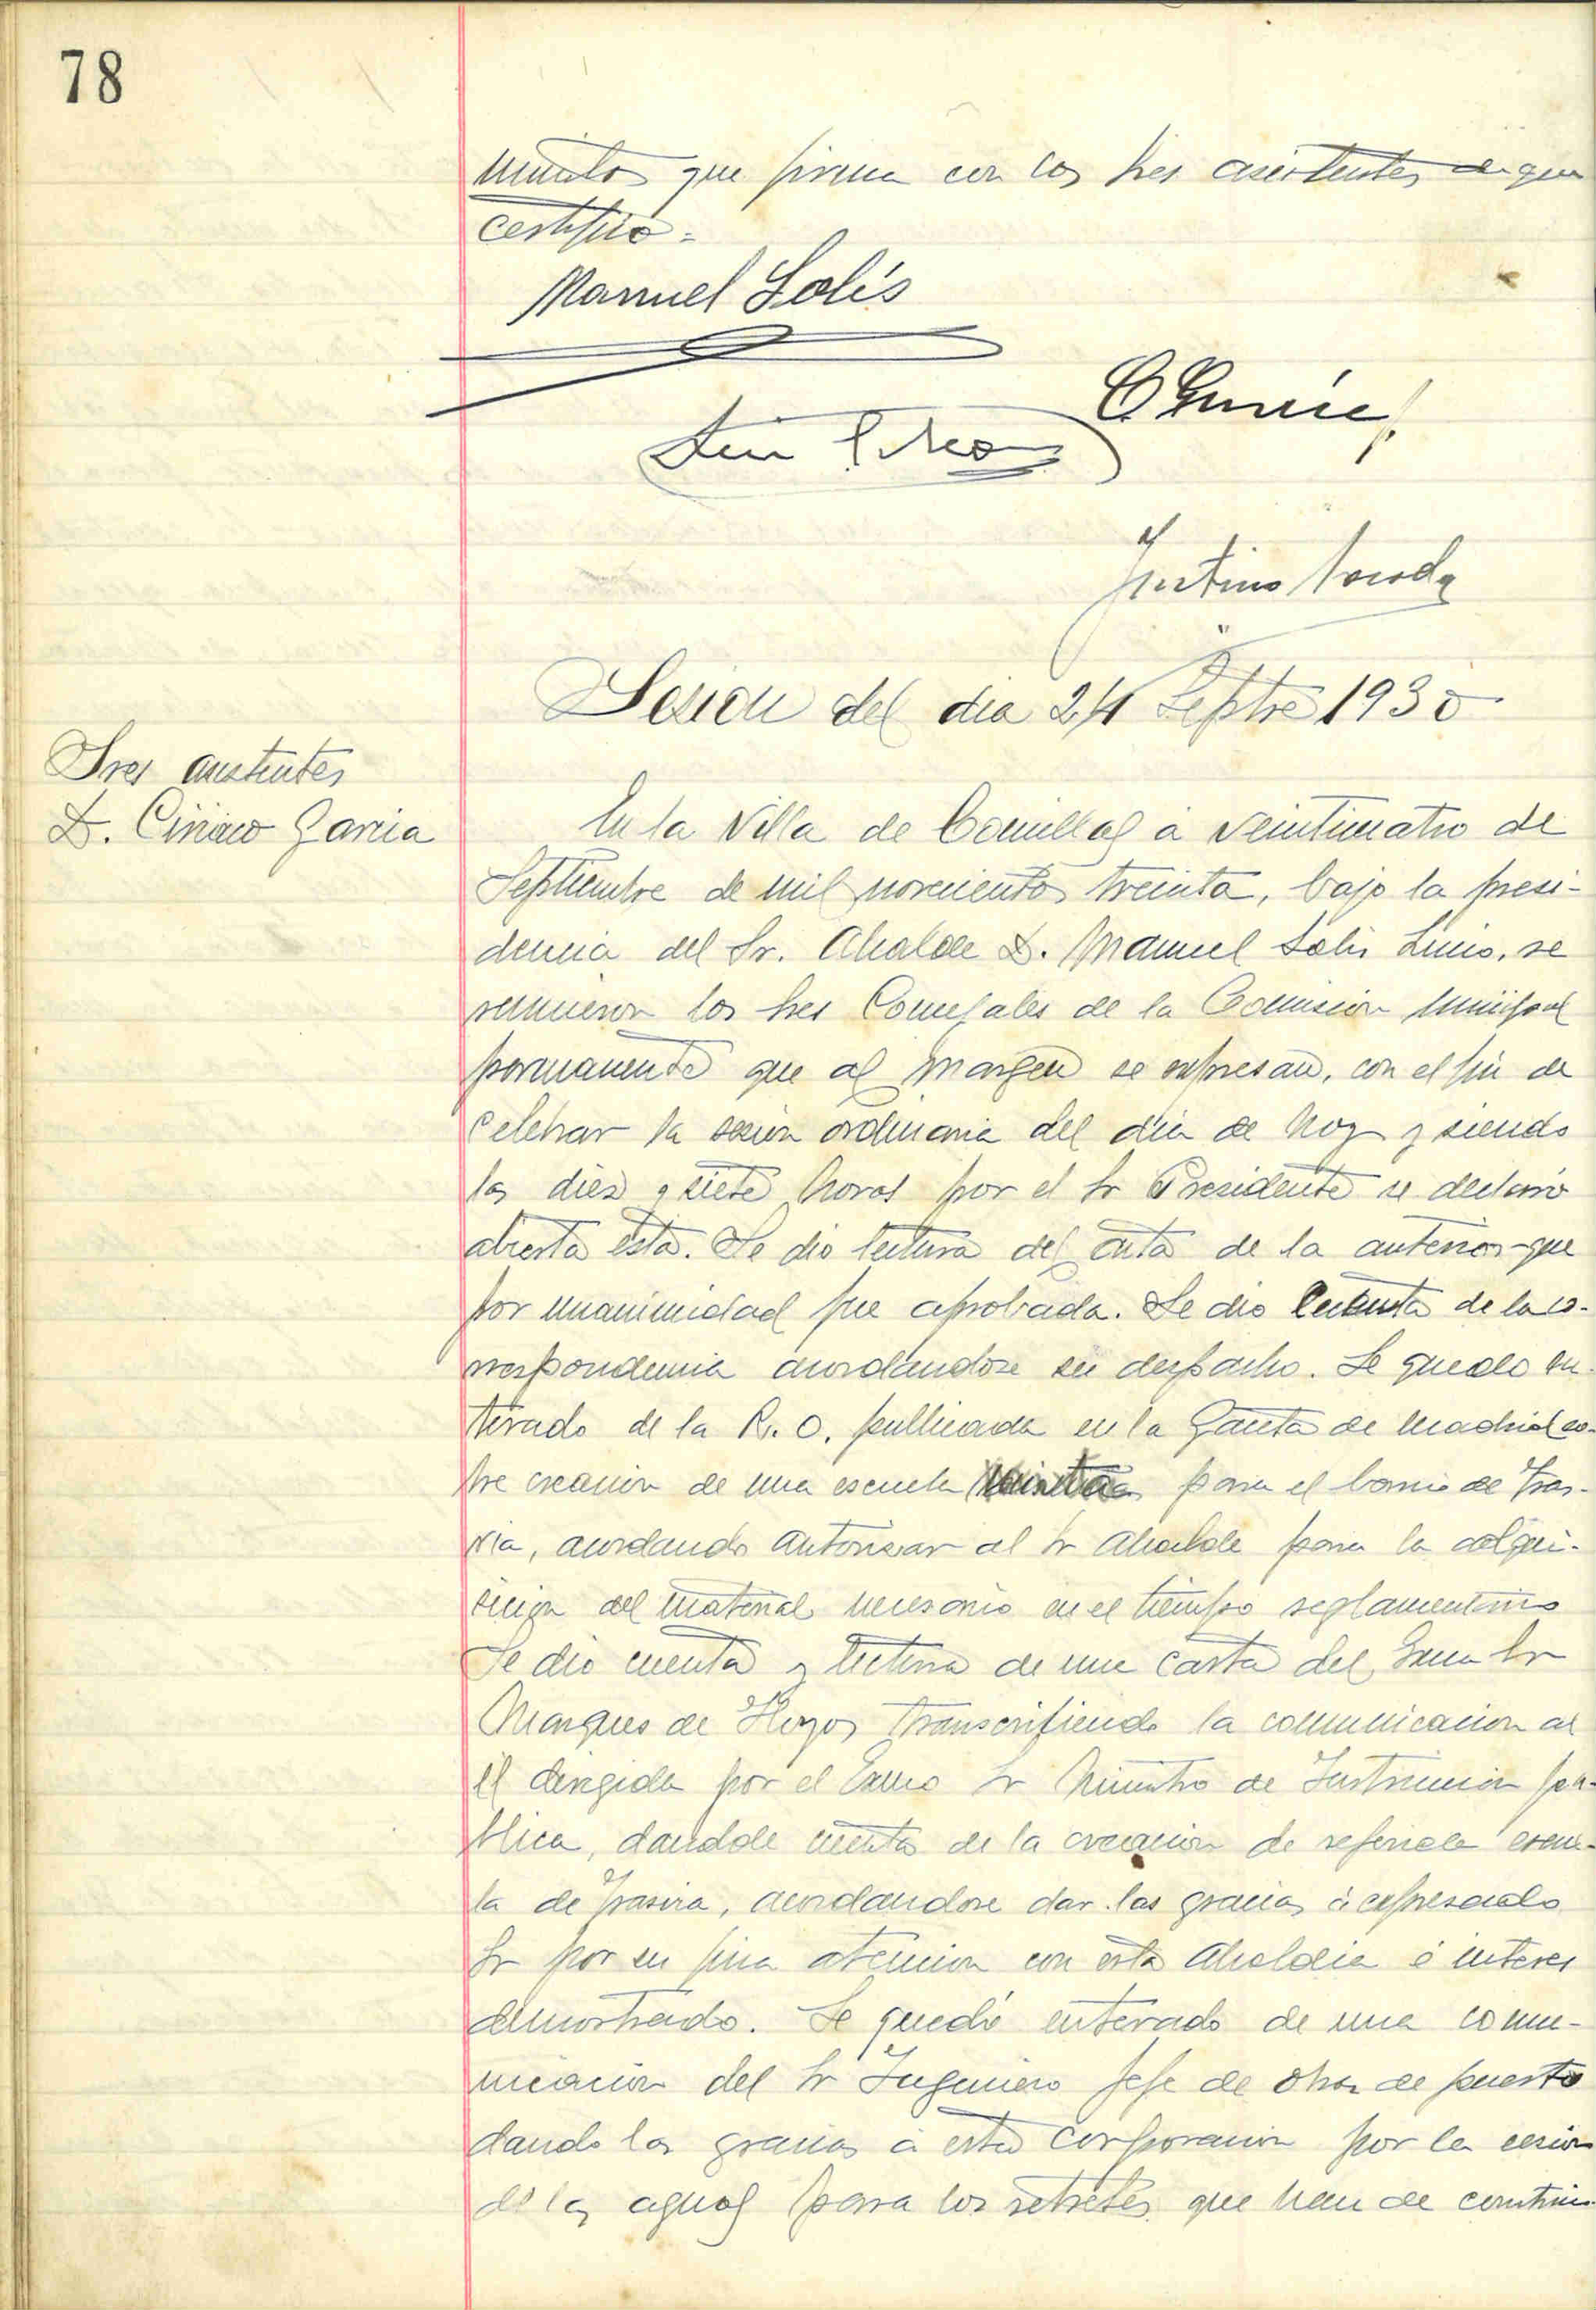 78
que firma con los sres asistentes de que
certifico =
Manuel Solís
Sesion del dia 24 Septbre 1930
Sres asistentes
D. Ciriaco Garcia
En la Villa de Comillas a veinticuatro de
Septiembre de mil novecientos treinta, bajo la presi-
dencia del Sr. Alcalde D. Manuel Solis, se
reunieron los sres Concejales de la Comision municipal
permanente que al margen se expresan, con el fin de
celebrar la sesion ordinaria del dia de hoy y siendo
las diez y siete horas por el Sr Presidente se declaró
abierta esta. Se dio lectura del acta de la anterior que
por unanimidad fue aprobada. Se dio cuenta de la co-
rrespondencia acordandose su despacho. Se quedo en-
terado de la R. O. publicada en la Gaceta de Madrid so-
bre creacion de una escuela para el barrio de Tras-
via, acordando autorizar al Sr Alcalde para la adqui-
sicion del material necesario en el tiempo reglamentario
Se dio cuenta y lectura de una carta del Excmo Sr
Marques de Hoyos transcribiendo la comunicacion a
él dirigida por el Excmo Sr Ministro de Instruccion pu-
blica, dandole cuenta de la creacion de referida escue-
la de Trasvia, acordandose dar las gracias á expresado
Sr por su fina atencion con esta Alcaldia é interes
demostrado. Se quedó enterado de una comu-
nicacion del Sr Ingeniero Jefe de obras de puerto
dando las gracias a esta Corporacion por la cesion
de las aguas para los retretes que han de constru-